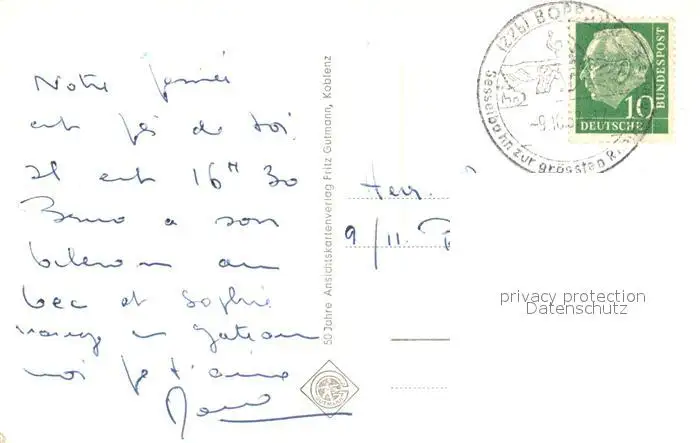 Notre pensée
est près de toi.
Il est 16ʰ 30
Bruno a son
biberon au
bec et Sophie
mange un gateau
moi je t'aime
50 Jahre Ansichtskartenverlag Fritz Gutmann, Koblenz
GUTMANN
Herr.
9/11.
(22b) BOPPARD
Sesselbahn zur grössten R
-9.10.5
10
DEUTSCHE
BUNDESPOST
privacy protection
Datenschutz